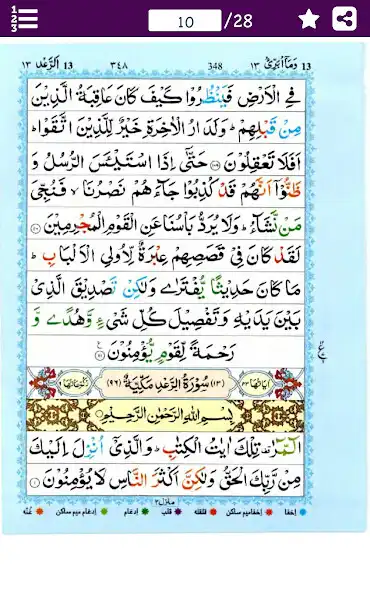 10 /28
13 اَلرَّعْد ١٣ ٣٤٨ 348 وَمَآ اُبَرِّئُ ١٣ 13
فِي الْاَرْضِ فَيَنْظُرُوْا كَيْفَ كَانَ عَاقِبَةُ الَّذِيْنَ
مِنْ قَبْلِهِمْ ؕ وَلَدَارُ الْاٰخِرَةِ خَيْرٌ لِّلَّذِيْنَ اتَّقَوْا ؕ
اَفَلَا تَعْقِلُوْنَ ۝۱۰۹ حَتّٰۤى اِذَا اسْتَيْـَٔسَ الرُّسُلُ وَ
ظَنُّوْۤا اَنَّهُمْ قَدْ كُذِبُوْا جَآءَهُمْ نَصْرُنَا ۙ فَنُجِّيَ
مَنْ نَّشَآءُ ؕ وَلَا يُرَدُّ بَاْسُنَا عَنِ الْقَوْمِ الْمُجْرِمِيْنَ ۝۱۱۰
لَقَدْ كَانَ فِيْ قَصَصِهِمْ عِبْرَةٌ لِّاُولِي الْاَلْبَابِ ؕ
مَا كَانَ حَدِيْثًا يُّفْتَرٰى وَلٰكِنْ تَصْدِيْقَ الَّذِيْ
بَيْنَ يَدَيْهِ وَتَفْصِيْلَ كُلِّ شَيْءٍ وَّهُدًى وَّ
رَحْمَةً لِّقَوْمٍ يُّؤْمِنُوْنَ ۝۱۱۱
اٰيَاتُهَا ٤٣ (١٣) سُوْرَةُ الرَّعْدِ مَدَنِيَّةٌ (٩٦) رُكُوْعَاتُهَا ٦
بِسْمِ اللّٰهِ الرَّحْمٰنِ الرَّحِيْمِ
الٓمّٓرٰ ۫ تِلْكَ اٰيٰتُ الْكِتٰبِ ؕ وَالَّذِيْۤ اُنْزِلَ اِلَيْكَ
مِنْ رَّبِّكَ الْحَقُّ وَلٰكِنَّ اَكْثَرَ النَّاسِ لَا يُؤْمِنُوْنَ ۝۱
منزل ٣
اخفا اخفامیم ساکن قلقله قلب ادغام ادغام میم ساکن غنّه